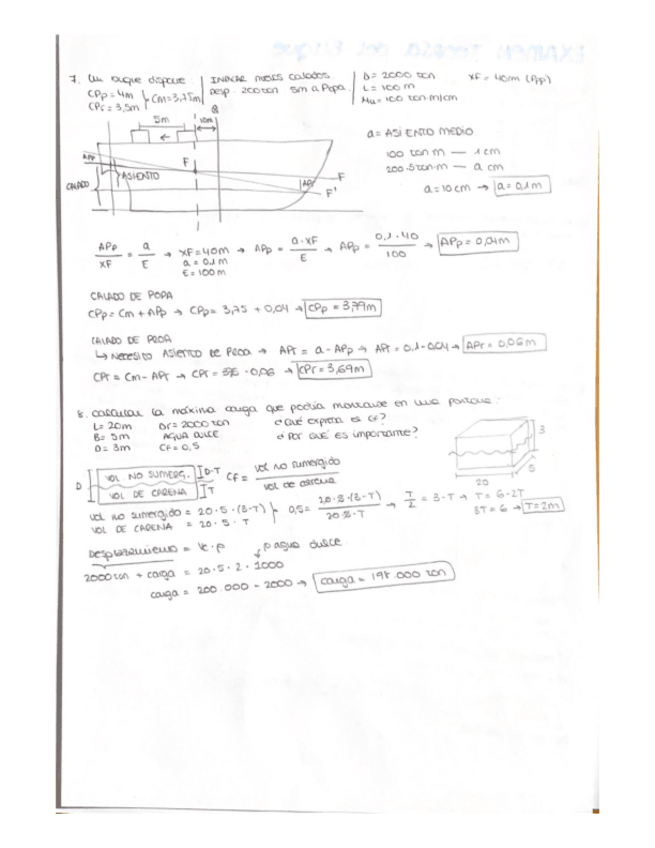 7. Un buque dispone
CPp = 4m
CPr = 3,5m
Cm = 3,75m
INDICAR NUEVOS CALADOS
Desp. 200 ton 5m a Popa.
D = 2000 ton
L = 100 m
Mu = 100 ton·m/cm
XF = 40m (Ppp)
5m
10m
APp
CALADO
ASIENTO
F
F
F'
APr
a = ASIENTO MEDIO
100 ton·m — 1 cm
200·5 ton·m — a cm
a = 10 cm → a = 0,1m
APp/XF = a/E → XF = 40m → APp = a·XF/E → APp = 0,1·40/100 → APp = 0,04m
a = 0,1m
E = 100m
CALADO DE POPA
CPp = Cm + APp → CPp = 3,75 + 0,04 → CPp = 3,79m
CALADO DE PROA
↳ Necesito ASIENTO DE PROA → APr = a - APp → APr = 0,1-0,04 → APr = 0,06m
CPr = Cm - APr → CPr = 3,75 - 0,06 → CPr = 3,69m
8. Calcular la máxima carga que podría montarse en una pontona:
L = 20m
B = 5m
D = 3m
Dr = 2000 ton
AGUA DULCE
CF = 0,5
¿Qué expresa el CF?
¿POR QUÉ ES importante?
3
5
20
D
VOL NO SUMERG.
D-T
VOL DE CARENA
T
CF = vol no sumergido / vol de carena
vol no sumergido = 20·5·(3-T)
VOL DE CARENA = 20·5·T
0,5 = 20·5·(3-T) / 20·5·T → T/2 = 3-T → T = 6-2T
3T = 6 → T = 2m
Desplazamiento = Vc·ρ
ρ agua dulce
2000 ton + carga = 20·5·2·1000
carga = 200.000 - 2000 → carga = 198.000 ton